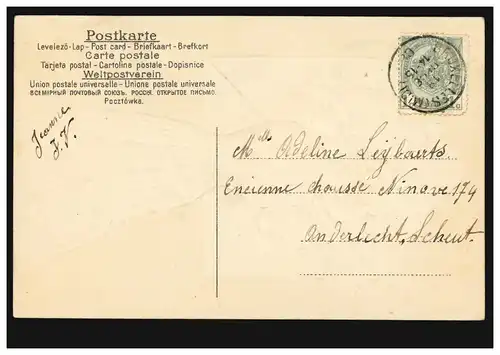 Postkarte
Levelező-Lap - Post card - Briefkaart - Brefkort
Carte postale
Tarjeta postal - Cartolina postale - Dopisnice
Weltpostverein
Union postale universelle - Unione postale universale
ВСЕМІРНЫЙ ПОЧТОВЫЙ СОЮЗЪ. РОССІЯ. ОТКРЫТОЕ ПИСЬМО.
Pocztówka.
Jeanne
J. V.
Mlle Adeline Leybaerts
Encienne chaussé Ninove 174
Anderlecht, Scheut.